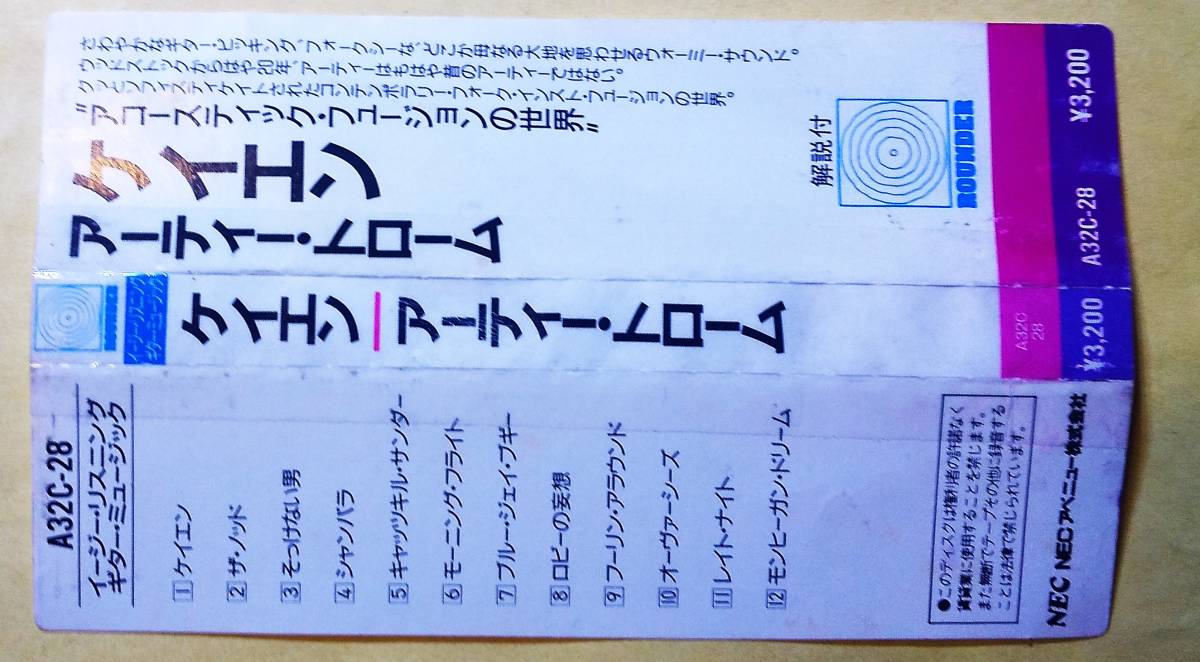 さわやかなギター・ピッキング、フォークシーな、どこか母なる大地を思わせるウォーミー・サウンド。
ウッドストックからはや20年、アーティーはもはや昔のアーティーではない。
グッとソフィスティケイトされたコンテンポラリー・フォーク・インスト・フュージョンの世界。
"アコースティック・フュージョンの世界"
ケイエン
アーティー・トローム
解説付
ROUNDER
A32C-28
¥3,200
ROUNDER
イージー・リスニング
ギター・ミュージック
ケイエン
アーティー・トローム
A32C
28
¥3,200
A32C-28
イージー・リスニング
ギター・ミュージック
1 ケイエン
2 ザ・ノッド
3 そっけない男
4 シャンバラ
5 キャッツキル・サンダー
6 モーニング・フライト
7 ブルー・ジェイ・ブギー
8 ロビーの妄想
9 フーリン・アラウンド
10 オーヴァーシーズ
11 レイト・ナイト
12 モンヒーガン・ドリーム
●このディスクは権利者の許諾なく
賃貸業に使用することを禁じます。
また無断でテープその他に録音する
ことは法律で禁じられています。
NEC NECアベニュー株式会社